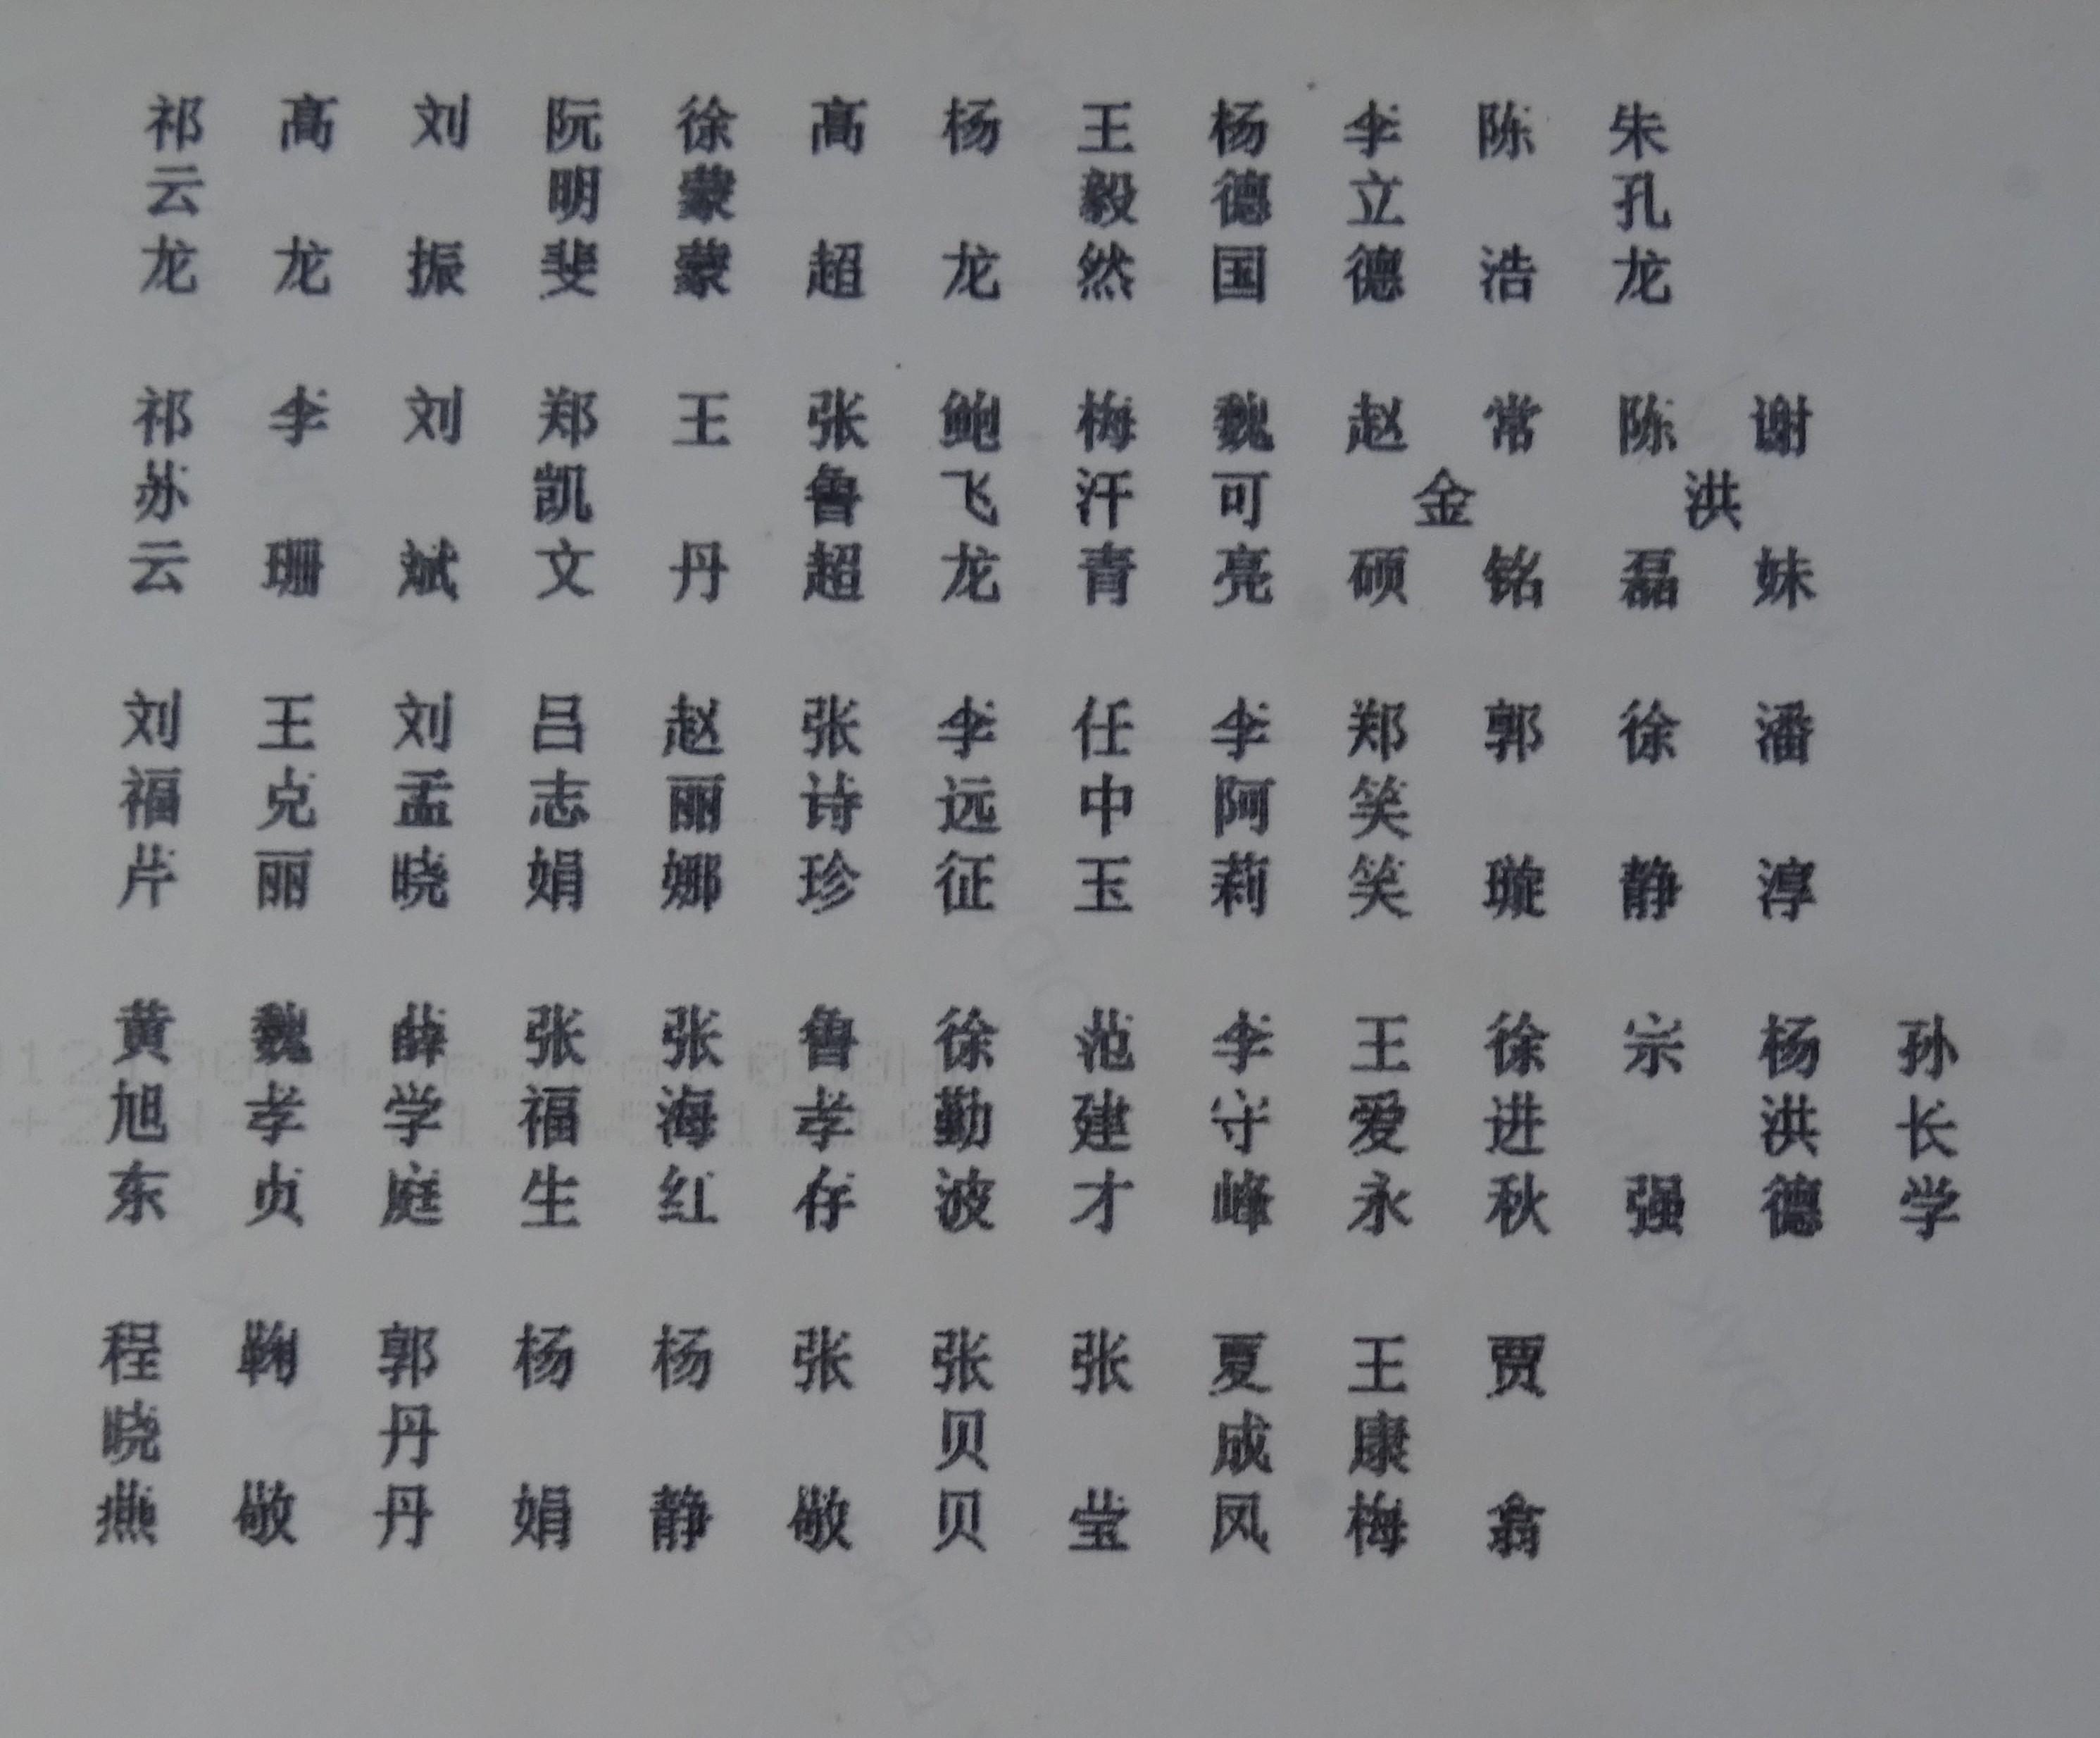 祁云龙
高龙
刘振
阮明斐
徐蒙蒙
高超
杨龙
王毅然
杨德国
李立德
陈浩
朱孔龙
祁苏云
李珊
刘斌
郑凯文
王丹
张鲁超
鲍飞龙
梅汗青
魏可亮
赵硕
常金铭
陈磊
谢洪妹
刘福芹
王克丽
刘孟晓
吕志娟
赵丽娜
张诗珍
李远征
任中玉
李阿莉
郑笑笑
郭璇
徐静
潘淳
黄旭东
魏孝贞
薛学庭
张福生
张海红
鲁孝存
徐勤波
范建才
李守峰
王爱永
徐进秋
宗强
杨洪德
孙长学
程晓燕
鞠敬
郭丹丹
杨娟
杨静
张敬
张贝贝
张莹
夏成凤
王康梅
贾翕